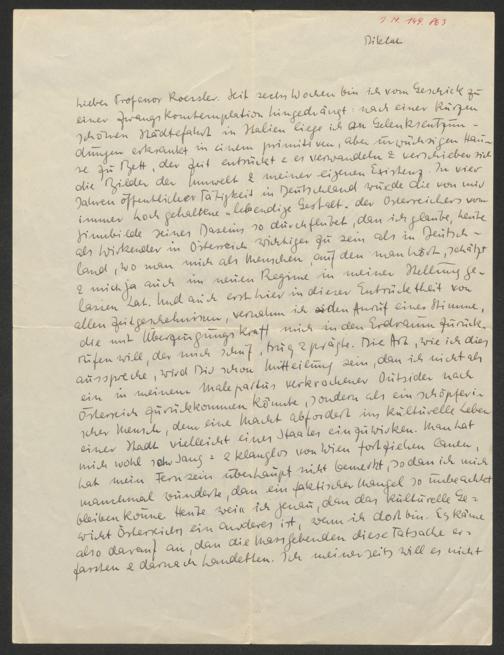 I.N. 149.863
Diktat
Lieber Professor Roessler. Seit sechs Wochen bin ich vom Geschick zu
einer Zwangskontemplation hingedrängt: nach einer kurzen
schönen Städtefahrt in Italien liege ich an Gelenksentzün-
dungen erkrankt in einem primitiven, aber urwüchsigen Hau-
se zu Bett, der Zeit entrückt & es verwandeln & verschieben sich
die Bilder der Umwelt & meiner eigenen Existenz. In vier
Jahren öffentlicher Tätigkeit in Deutschland wurde die von mir
immer hochgehaltene - lebendige Gestalt - der Österreichers vom
Sinnbilde seines Daseins so durchflutet, dan ich glaube, heute
als Wirkender in Österreich wichtiger zu sein als in Deutsch-
land, wo man mich als Menschen, auf den man hört, schätzt
& mich ja auch im neuen Regime in meiner Stellung ge-
lassen hat. Und auch erst hier in dieser Entrücktheit von
allen Zeitgeschehnissen, vernahm ich den Anruf einer Stimme,
die mit Überzeugungskraft mich in den Erdraum zurück-
rufen will, der mich schuf, trug & prägte. Die Art, wie ich dies
ausspreche, wird Dir schon Mitteilung sein, dan ich nicht als
ein in meinem Malepartus verkrochener Outsider nach
Österreich zurückkommen könnte, sondern als ein schöpferi-
scher Mensch, dem eine Macht abfordert ins kulturelle Leben
einer Stadt vielleicht eines Staates einzuwirken. Man hat
mich wohl sang = & klanglos von Wien fortziehen lassen,
hat mein Fernsein überhaupt nicht bemerkt, so dan ich mich
manchmal wunderte, dan ein faktischer Mangel so unbeachtet
bleiben könne. Heute wein ich genau, dan das kulturelle Ge-
wicht Österreichs ein anderes ist, wenn ich dort bin. Es käme
also darauf an, dan die Massgebenden diese Tatsache er-
fassten & darnach handelten. Ich meinerseits will es nicht